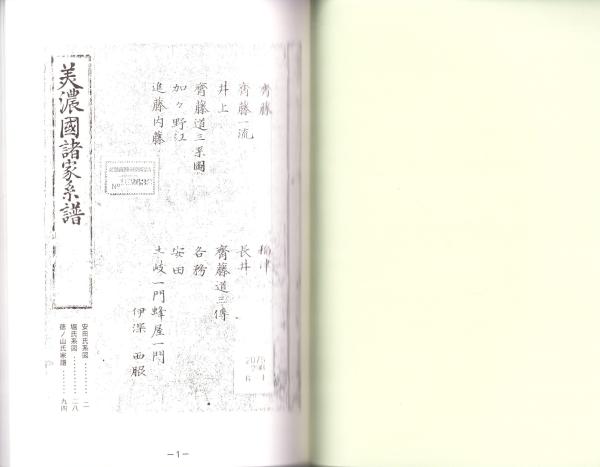 齊藤
齊藤一流
井上
齊藤道三系圖
加々野江
進藤内藤
稲津
長井
齊藤道三傳
各務
安田
土岐一門蜂屋一門
伊深 西服
美濃國諸家系譜
安田氏系図………二一
堀氏系図………二八
徳ノ山氏家譜………九四
－1－